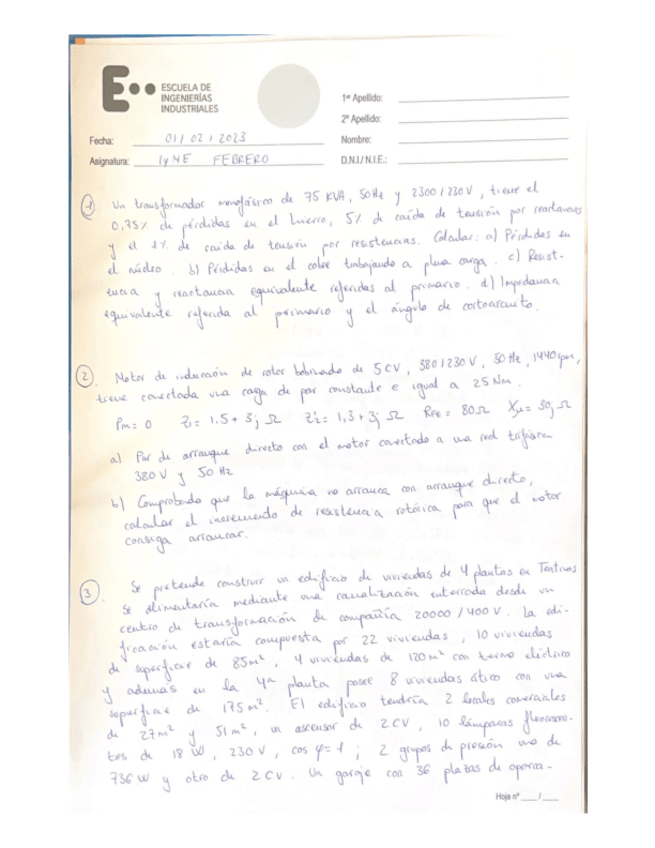 E••
ESCUELA DE
INGENIERÍAS
INDUSTRIALES
1er Apellido:
2º Apellido:
Nombre:
D.N.I / N.I.E.:
Fecha: 01 / 02 / 2023
Asignatura: IyME FEBRERO
1 Un transformador monofásico de 75 KVA, 50Hz y 2300/230V, tiene el
0,75% de pérdidas en el hierro, 5% de caída de tensión por reactancias
y el 1% de caída de tensión por resistencias. Calcular: a) Pérdidas en
el núcleo. b) Pérdidas en el cobre trabajando a plena carga. c) Resist-
encia y reactancia equivalente referidas al primario. d) Impedancia
equivalente referida al primario y el ángulo de cortocircuito.
2 Motor de inducción de rotor bobinado de 5CV, 380/230V, 50Hz, 1440rpm,
tiene conectada una carga de par constante e igual a 25 Nm.
Pm = 0 Z1 = 1,5 + 3j Ω Z'2 = 1,3 + 3j Ω RFE = 80Ω Xμ = 30j Ω
a) Par de arranque directo con el motor conectado a una red trifásica
380V y 50 Hz
b) Comprobando que la máquina no arranca con arranque directo,
calcular el incremento de resistencia rotórica para que el motor
consiga arrancar.
3 Se pretende construir un edificio de viviendas de 4 plantas en
Se alimentaría mediante una canalización enterrada desde un
centro de transformación de compañía 20000/400V. La edi-
ficación estaría compuesta por 22 viviendas, 10 viviendas
de superficie de 85m², 4 viviendas de 120m² con termo eléctrico
y además en la 4ª planta posee 8 viviendas ático con una
superficie de 175m². El edificio tendría 2 locales comerciales
de 27m² y 51m², un ascensor de 2CV, 10 lámparas fluorescen-
tes de 18W, 230V, cos φ = 1; 2 grupos de presión uno de
736W y otro de 2CV. Un garaje con 36 plazas de aparca-
Hoja nº ___ / ___